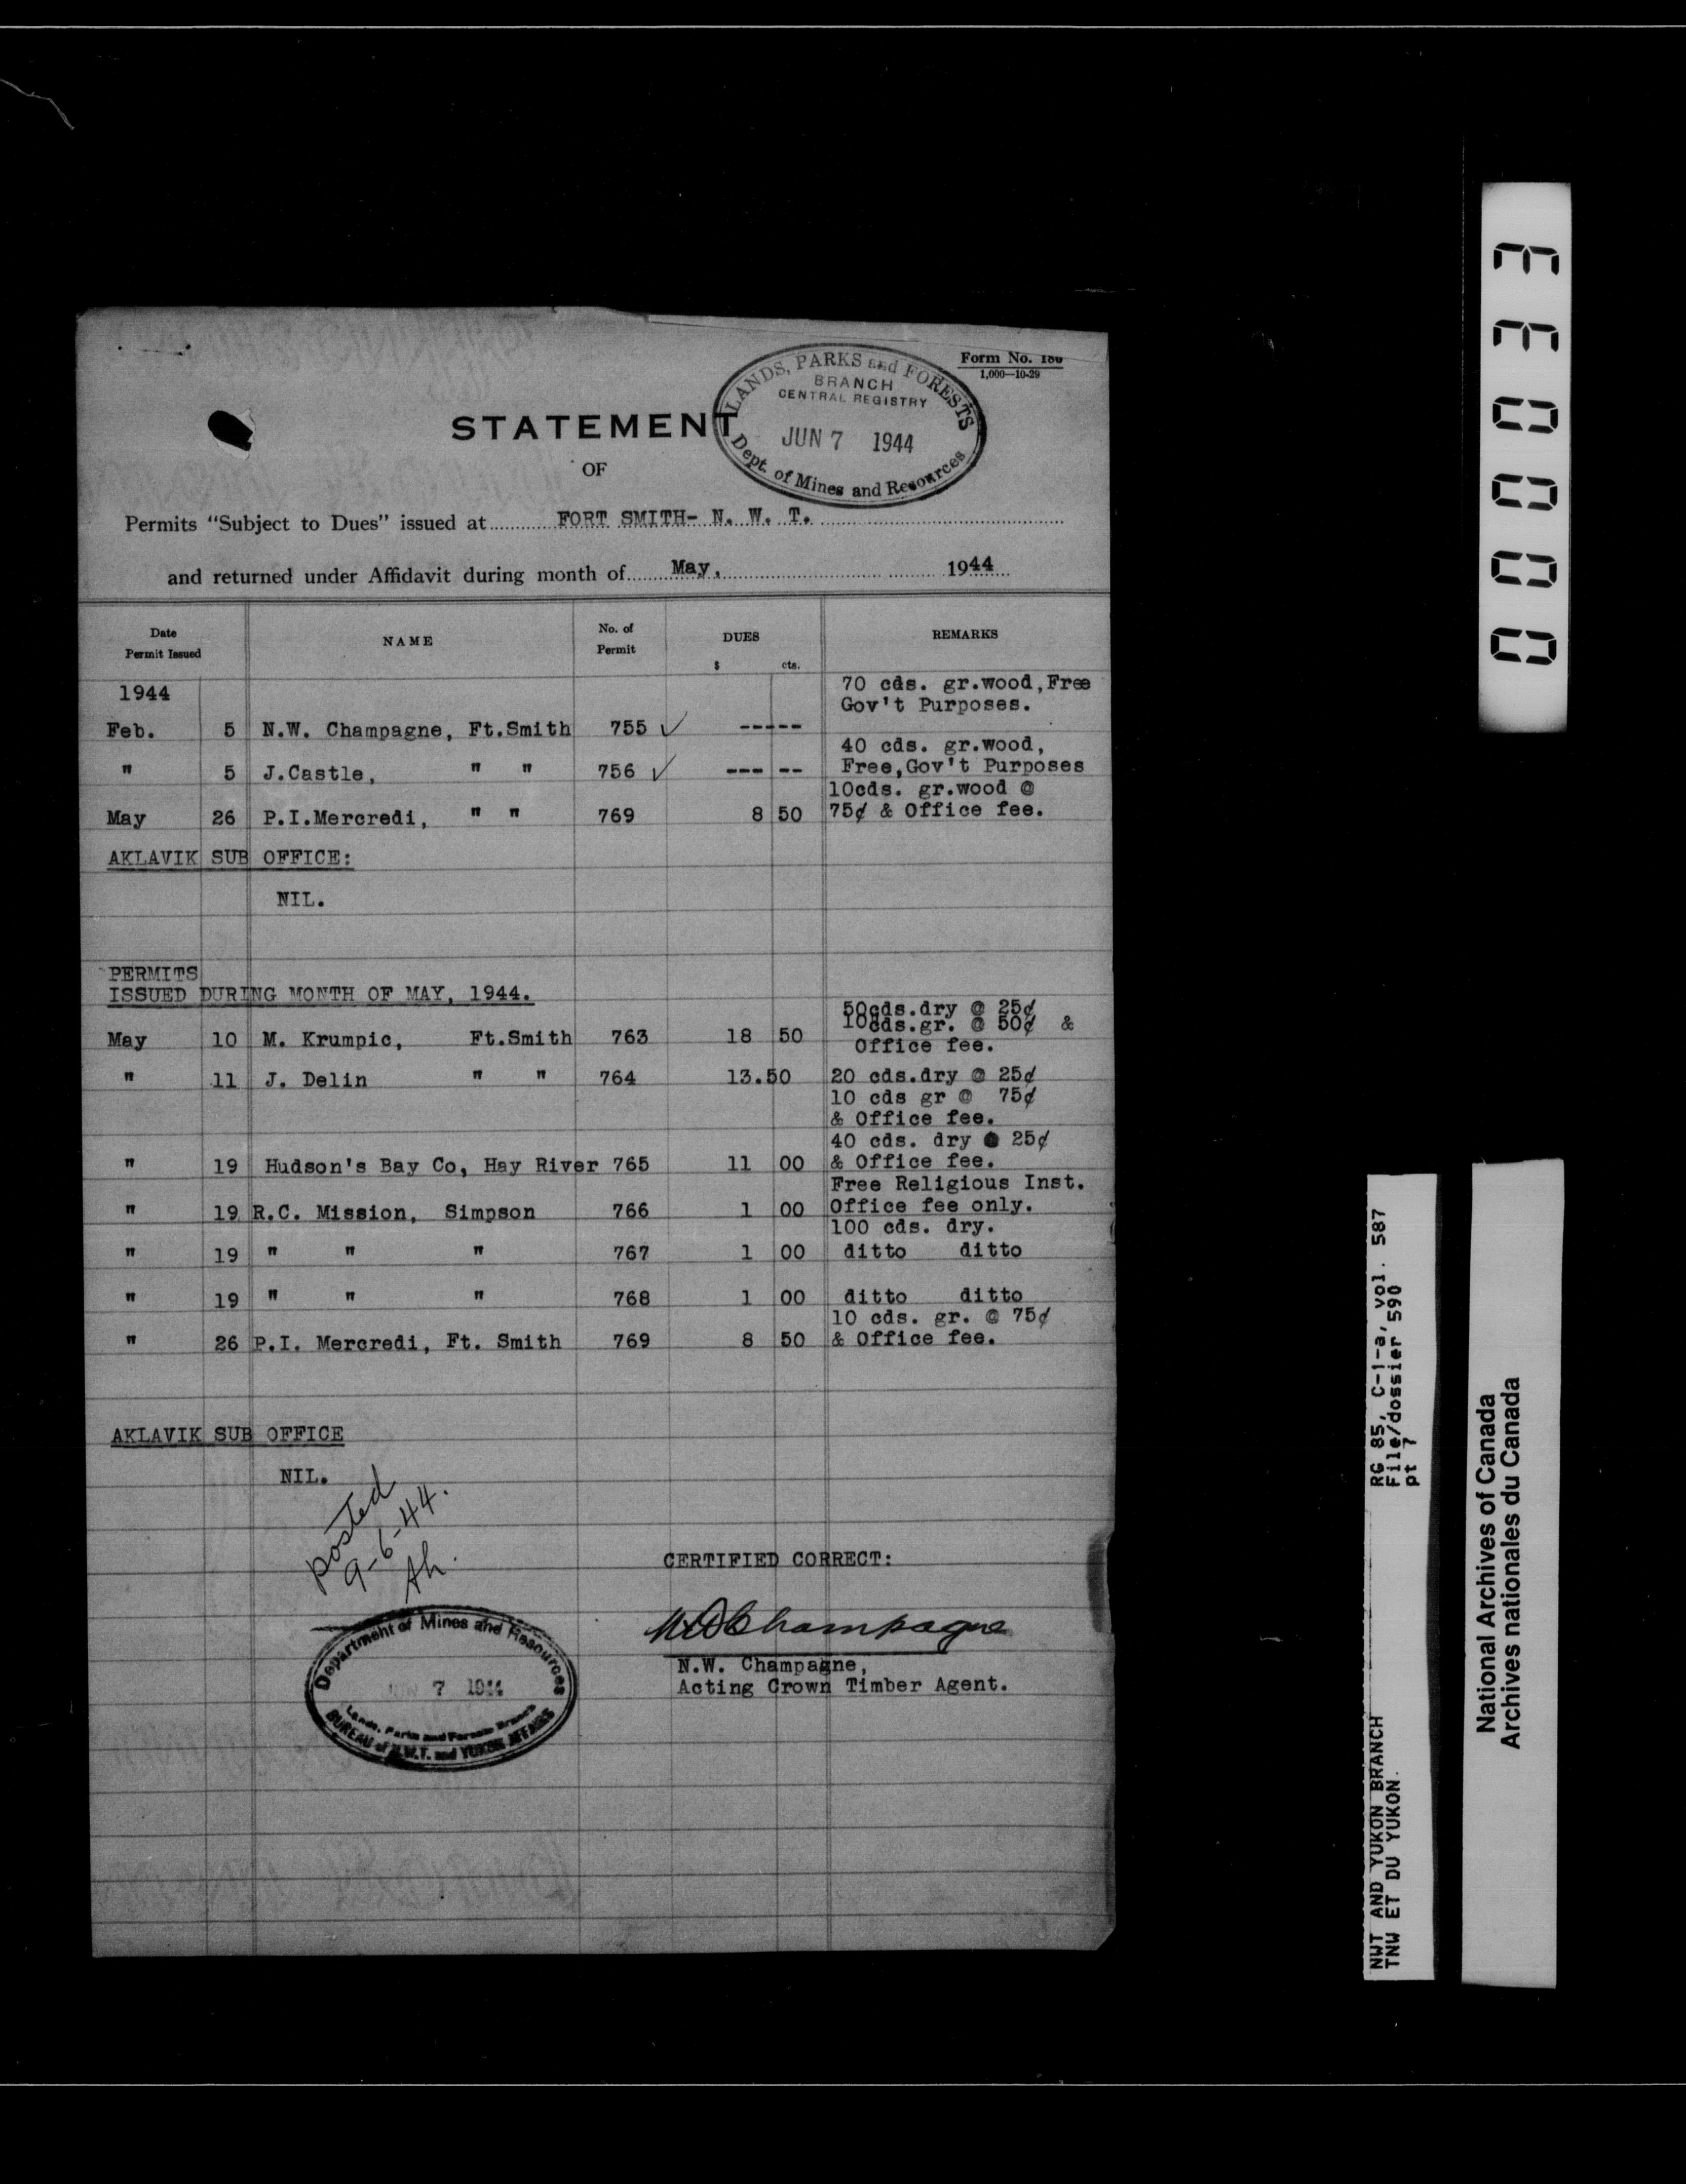 Form No. 180
1,000—10-29
LANDS, PARKS and FORESTS
BRANCH
CENTRAL REGISTRY
JUN 7 1944
Dept. of Mines and Resources
STATEMENT
OF
Permits "Subject to Dues" issued at FORT SMITH- N. W. T.
and returned under Affidavit during month of May, 1944
Date Permit Issued NAME No. of Permit DUES $ cts. REMARKS
1944 70 cds. gr.wood,Free
Gov't Purposes.
Feb. 5 N.W. Champagne, Ft.Smith 755 ✓ -----
40 cds. gr.wood,
" 5 J.Castle, " " 756 ✓ --- -- Free,Gov't Purposes
10cds. gr.wood @
May 26 P.I.Mercredi, " " 769 8 50 75¢ & Office fee.
AKLAVIK SUB OFFICE:
NIL.
PERMITS
ISSUED DURING MONTH OF MAY, 1944.
50cds.dry @ 25¢
10cds.gr. @ 50¢ &
May 10 M. Krumpic, Ft.Smith 763 18 50 Office fee.
" 11 J. Delin " " 764 13.50 20 cds.dry @ 25¢
10 cds gr @ 75¢
& Office fee.
40 cds. dry @ 25¢
" 19 Hudson's Bay Co, Hay River 765 11 00 & Office fee.
Free Religious Inst.
" 19 R.C. Mission, Simpson 766 1 00 Office fee only.
100 cds. dry.
" 19 " " " 767 1 00 ditto ditto
" 19 " " " 768 1 00 ditto ditto
10 cds. gr. @ 75¢
" 26 P.I. Mercredi, Ft. Smith 769 8 50 & Office fee.
AKLAVIK SUB OFFICE
NIL.
posted
9-6-44.
Ah.
CERTIFIED CORRECT:
NWChampagne
N.W. Champagne,
Acting Crown Timber Agent.
Department of Mines and Resources
7 1944
Lands, Parks and Forests Branch
BUREAU of N.W.T. and YUKON AFFAIRS
000033
RG 85, C-1-a, vol. 587
File/dossier 590
pt 7
NWT AND YUKON BRANCH
TNW ET DU YUKON.
National Archives of Canada
Archives nationales du Canada